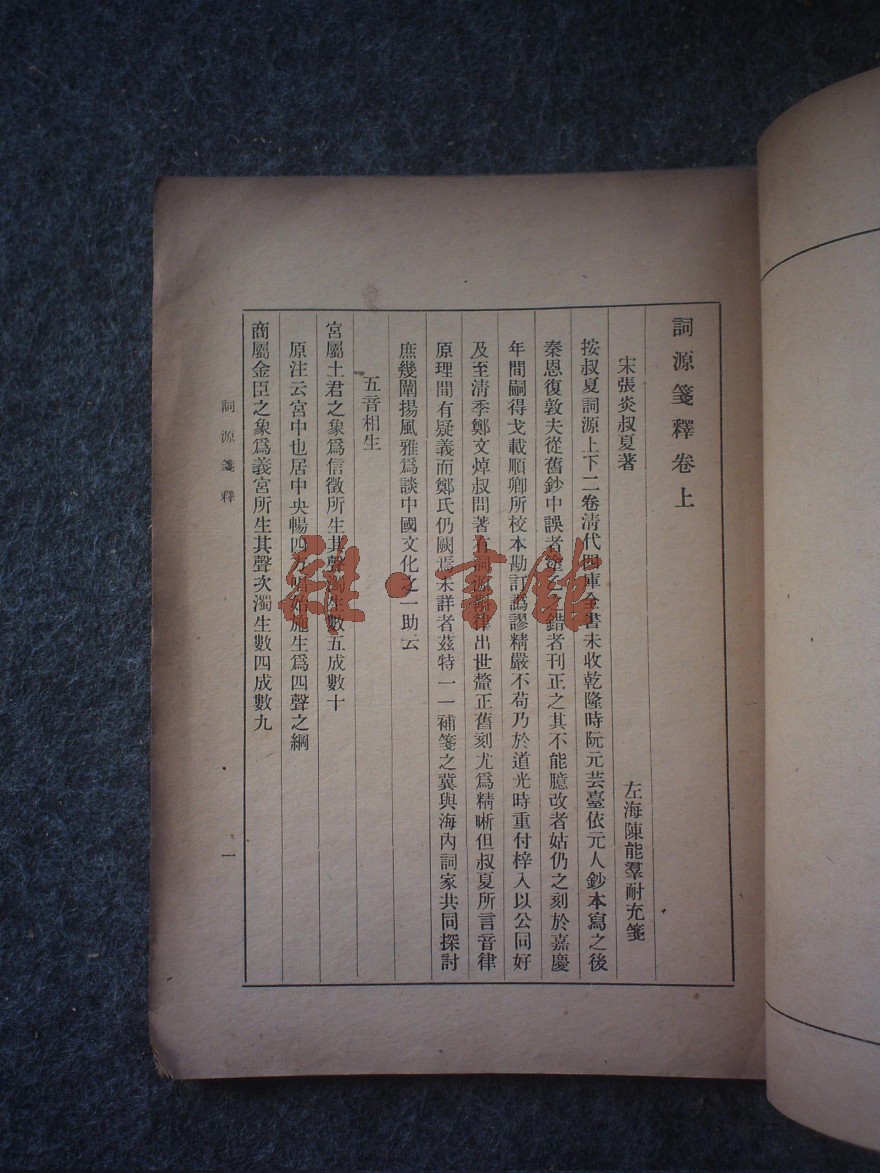 詞源箋釋卷上
宋張炎叔夏著
左海陳能羣耐充箋
按叔夏詞源上下二卷清代四庫全書未收乾隆時阮元芸臺依元人鈔本寫之後
秦恩復敦夫從舊鈔中誤者塗乙錯者刊正之其不能臆改者姑仍之刻於嘉慶
年間嗣得戈載順卿所校本勘訂譌謬精嚴不苟乃於道光時重付梓人以公同好
及至清季鄭文焯叔問著有詞源斠律出世釐正舊刻尤爲精晰但叔夏所言音律
原理間有疑義而鄭氏仍闕焉未詳者茲特一一補箋之冀與海內詞家共同探討
庶幾闡揚風雅爲談中國文化之一助云
五音相生
宮屬土君之象爲信徵所生其聲濁生數五成數十
原注云宮中也居中央暢四方唱始施生爲四聲之綱
商屬金臣之象爲義宮所生其聲次濁生數四成數九
詞源箋釋
一
雜·書館